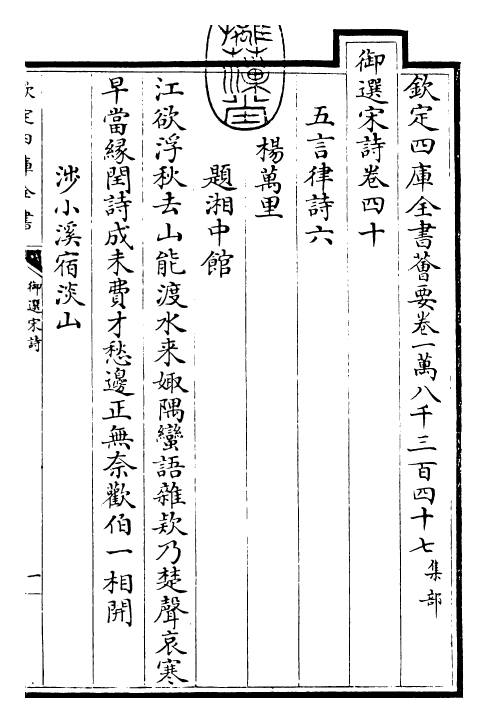 欽定四庫全書薈要卷一萬八千三百四十七集部
御選宋詩卷四十
五言律詩六
楊萬里
題湘中館
江欲浮秋去山能渡水来娵隅蠻語雜欵乃楚聲哀寒
早當縁閏詩成未費才愁邊正無奈歡伯一相開
渉小溪宿淡山
欽定四庫全書
御選宋詩
一